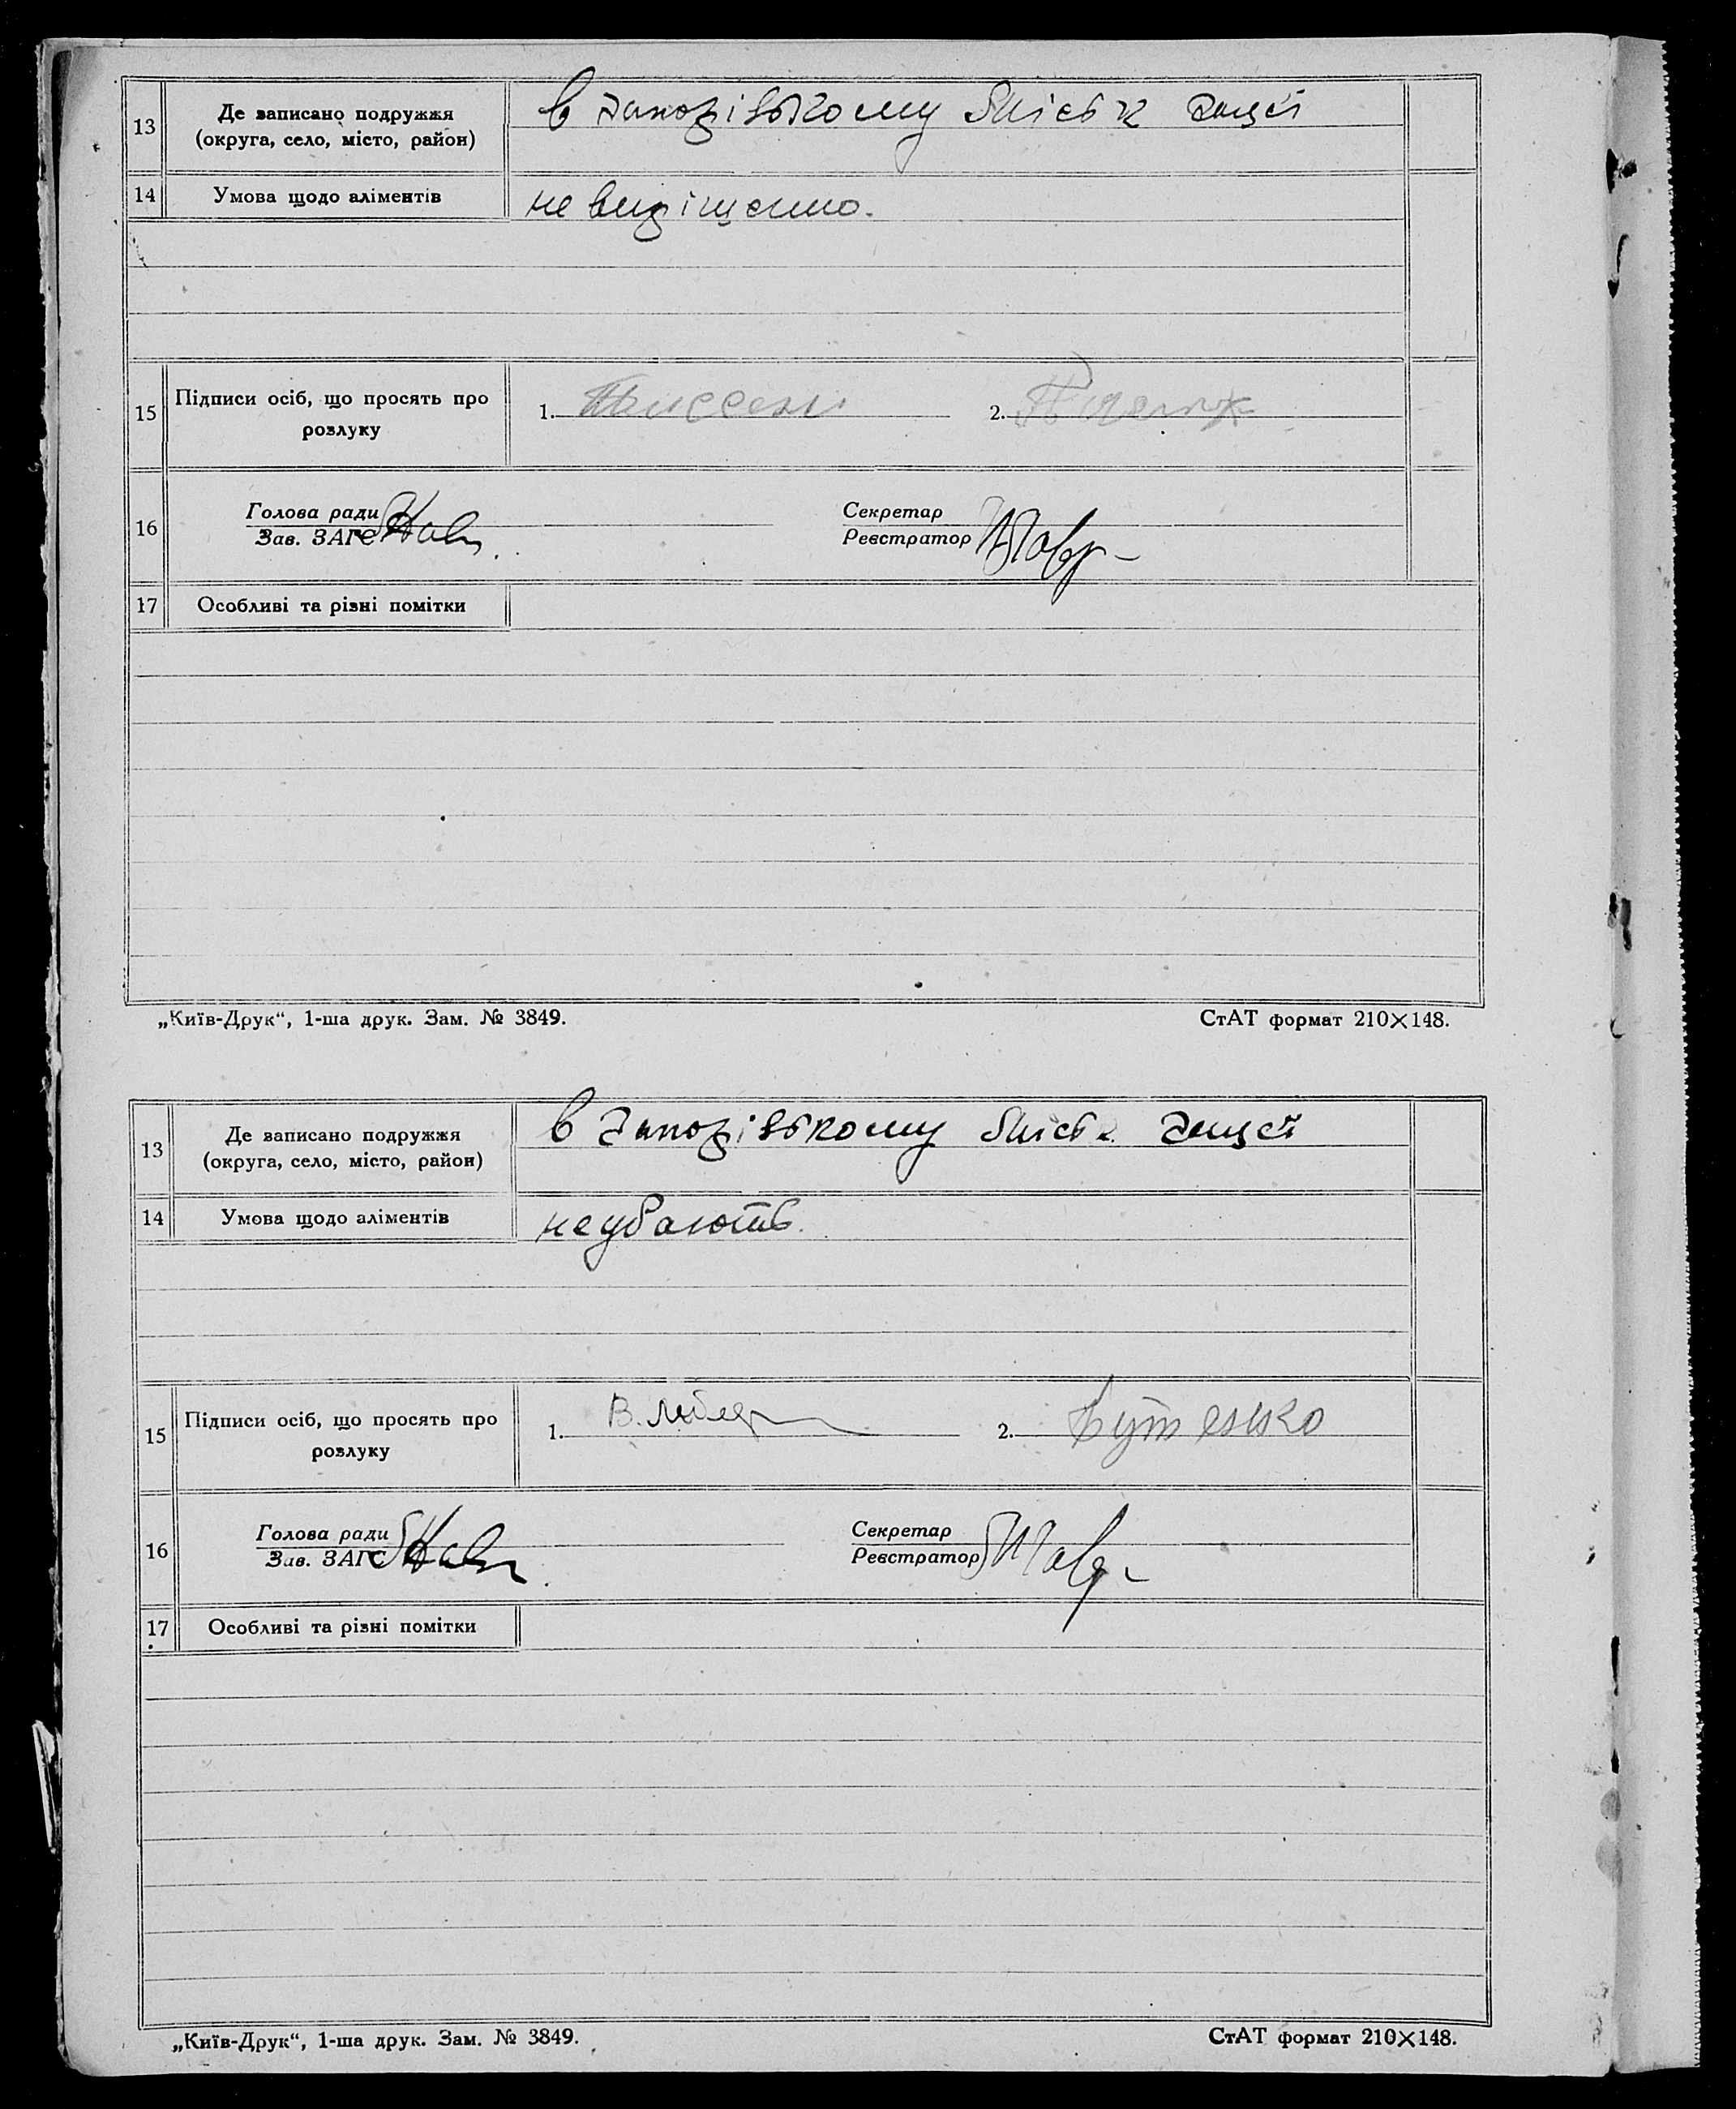 13
Де записано подружжя
(округа, село, місто, район)
в запорізькому міськ загсі
14
Умова щодо аліментів
не вирішено.
15
Підписи осіб, що просять про
розлуку
1. Тиссен
2.
16
Голова ради
Зав. ЗАГС
Секретар
Реєстратор
17
Особливі та різні помітки
„Київ-Друк“, 1-ша друк. Зам. № 3849.
СтАТ формат 210×148.
13
Де записано подружжя
(округа, село, місто, район)
в запорізькому міськ загсі
14
Умова щодо аліментів
15
Підписи осіб, що просять про
розлуку
1. В.
2. Бутенко
16
Голова ради
Зав. ЗАГС
Секретар
Реєстратор
17
Особливі та різні помітки
„Київ-Друк“, 1-ша друк. Зам. № 3849.
СтАТ формат 210×148.